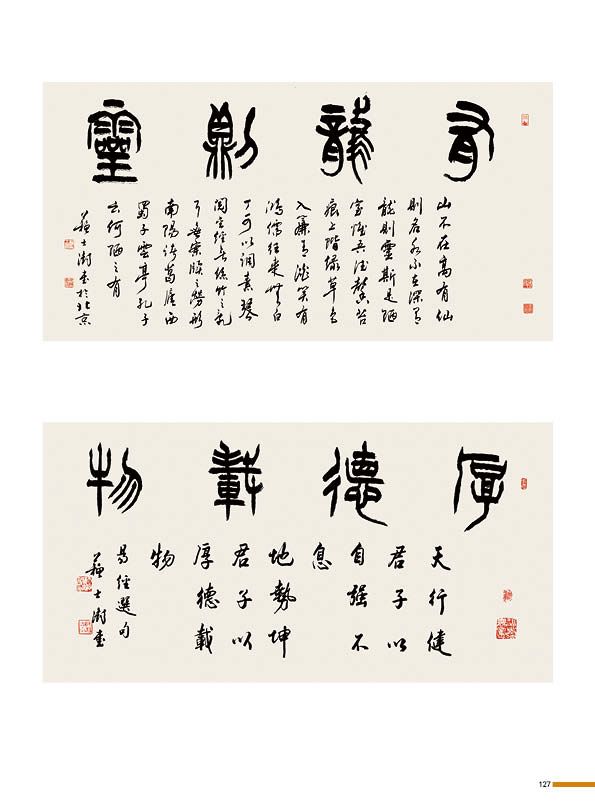 有龍則靈
山不在高有仙
則名水不在深有
龍則靈斯是陋
室惟吾德馨苔
痕上階緑草色
入簾青談笑有
鴻儒往来無白
丁可以調素琴
閲金經無絲竹之亂
耳無案牘之勞形
南陽諸葛廬西
蜀子雲亭孔子
云何陋之有
蘇士澍書於北京
厚德載物
天行健
君子以
自强不
息
地勢坤
君子以
厚德載
物
易經選句
蘇士澍書
127